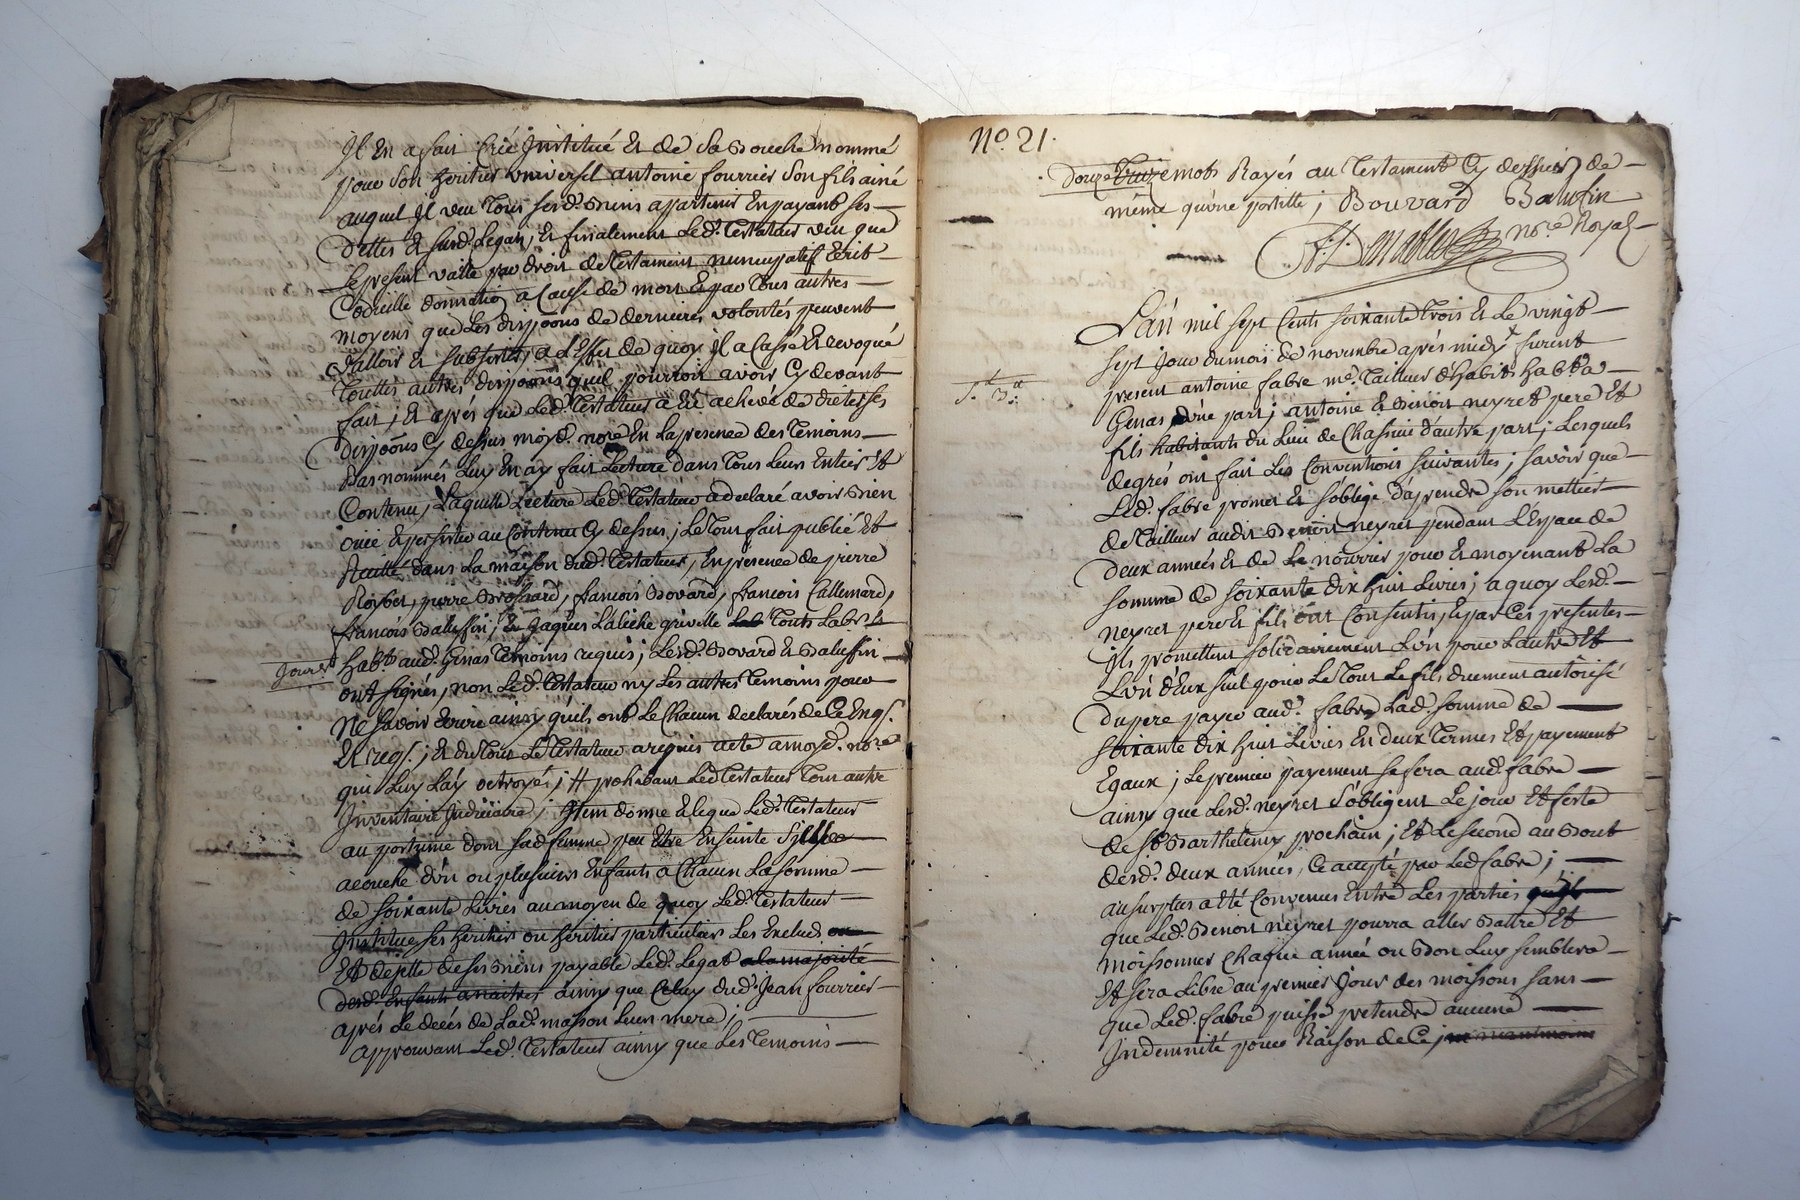 Il En a fait Créé Institué Et de Sa Bouche nommé
pour Son heritier universel antoine fourrier Son fils ainé
auquel Il veu Tous sesd. Biens apartenir En payant ses
Dettes Et susd. Legats; Et finalement Led. Testateur veu que
Le present vaille par droit de Testament nuncupatif Ecrit
Codicille donnation a Cause de mort Et par Tous autres
moyens que Les dispoons de dernieres volontés peuvent
valloir Et subsister, a L'Effet de quoy Il a Cassé Et revoqué
Touttes autres dispoons quil pourroit avoir Cy devant
fait; Et aprés que Led. Testateur a Eté achevé de dicter ses
dispoons Cy dessus moyd. nore En La presence des Temoins
Bas nommés Luy En ay fait Lecture dans Tous Leur Entier Et
Contenu, Laquelle Lecture Led. Testateur a declaré avoir Bien
ouie Et persister au Contenu Cy dessus; Le Tout fait publié Et
dans La maison dud. Testateur, En presence de pierre
Roybet, pierre Brossard, francois Bovard, francois Callemard,
francois Baluffin; Et Jaques Laliche Tous Labrs
Jours habts aud. Genas Temoins requis; Lesd. Bovard Et Baluffin
ont signés, non Led. Testateur ny Les autres Temoins pour
Ne Savoir Ecrire ainsy quils ont Le Chacun declarés de Ce Enqs.
Et reqs.; Et du Tout Le Testateur a requis acte a moyd. nore
qui Luy L'ay octroyé; # prohibant Led Testateur Tout autre
Inventaire Judiciaire; Item donne Et legue Led. Testateur
au posthume dont sad femme peu Etre Enceinte Sy Elle
acouche d'un ou plusieurs Enfants a Chacun La somme
de soixante Livres au moyen de quoy Led. Testateur
Institue ses heritiers ou heritier particuliers Les Exclud
Et dejette de ses Biens payable Led. Legat a la majorité
desd. Enfants a naitre ainsy que Celuy dud. Jean fourrier
aprés Le decés de Lad. masson Leur mere;
approuvant Led. Testateur ainsy que Les Temoins
No. 21.
Douze Treize mots Rayés au Testament Cy dessus de
même qu'une postille; Bouvard Balufin
nore Royal
L'an mil sept Cents soixante Trois Et Le vingt
sept Jour du mois de novembre aprés midy furent
present antoine fabre me. Tailleur d'habits habt a
Genas d'une part; antoine Et Benoit neyret pere Et
fils habitants du Lieu de Chassieu d'autre part; Lesquels
de grés ont fait Les Conventions suivantes; savoir que
Led. fabre promet Et s'oblige d'aprendre son mettier
de Tailleur audit Benoit neyret pendant L'Espace de
deux années Et de Le nourrir pour Et moyenant La
somme de soixante dix huit Livres; a quoy Lesd.
neyret pere Et fils ont Consentis, Et par Ces presentes
Ils promettent solidairement L'un pour L'autre Et
L'un d'Eux seul pour Le Tout Le fils duement autorisé
du pere payer aud. fabre Lad. somme de
soixante dix huit Livres En deux Termes Et payement
Egaux; Le premier payement se fera aud. fabre
ainsy que Lesd. neyret s'obligent Le jour Et feste
de St Barthelemy prochain; Et Le second au Bout
desd. deux années, Ce accepté par Led fabre;
au surplus a Eté Convenus Entre Les parties
que Led. Benoit neyret pourra aller Battre Et
moissonner Chaque année ou Bon Luy semblera
Et sera Libre au premier Jour des moissons sans
que Led. fabre puisse pretendre aucune
Indemnité pour Raison de Ce;